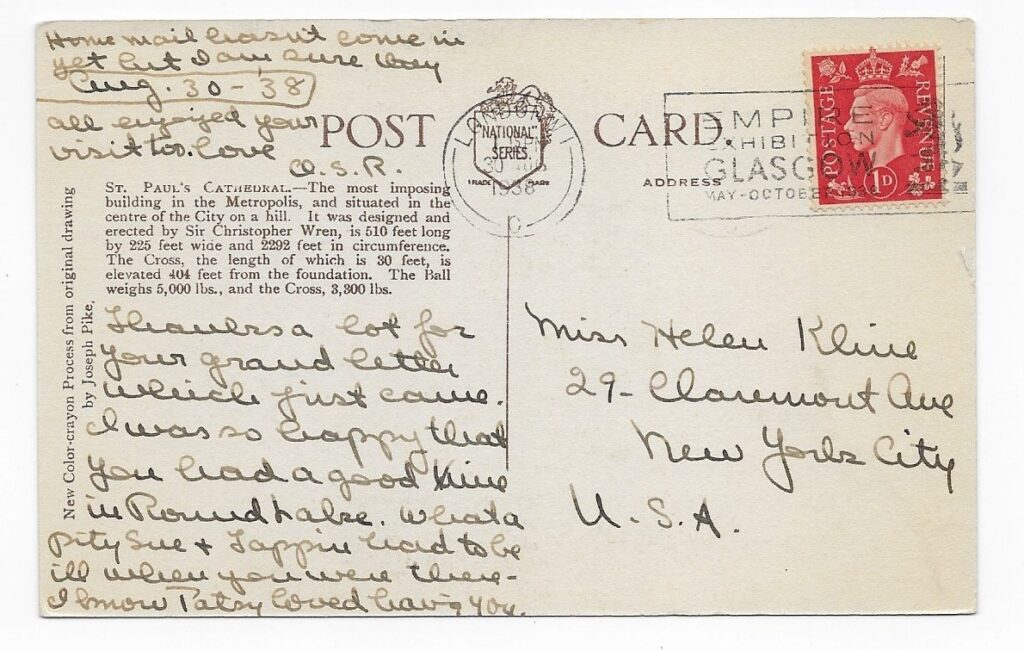 Home mail hasn't come in
yet but I am sure they
Aug. 30-38
all enjoyed your
visit too. Love
O.S.R.
POST CARD.
ADDRESS
NATIONAL
SERIES
TRADE MARK
LONDON W.1
30 AUG
1938
C
EMPIRE
EXHIBITION
GLASGOW
MAY-OCTOBER 1938
POSTAGE
REVENUE
1D
New Color-crayon Process from original drawing
by Joseph Pike.
ST. PAUL'S CATHEDRAL.—The most imposing
building in the Metropolis, and situated in the
centre of the City on a hill. It was designed and
erected by Sir Christopher Wren, is 510 feet long
by 225 feet wide and 2292 feet in circumference.
The Cross, the length of which is 30 feet, is
elevated 404 feet from the foundation. The Ball
weighs 5,000 lbs., and the Cross, 3,300 lbs.
Thanks a lot for
your grand letter
which just came.
I was so happy that
you had a good time
in Round Lake. What a
pity Sue + Tappin had to be
ill when you were there-
I know Patsy loved hav'g you.
Miss Helen Kline
29- Claremont Ave
New York City
U.S.A.